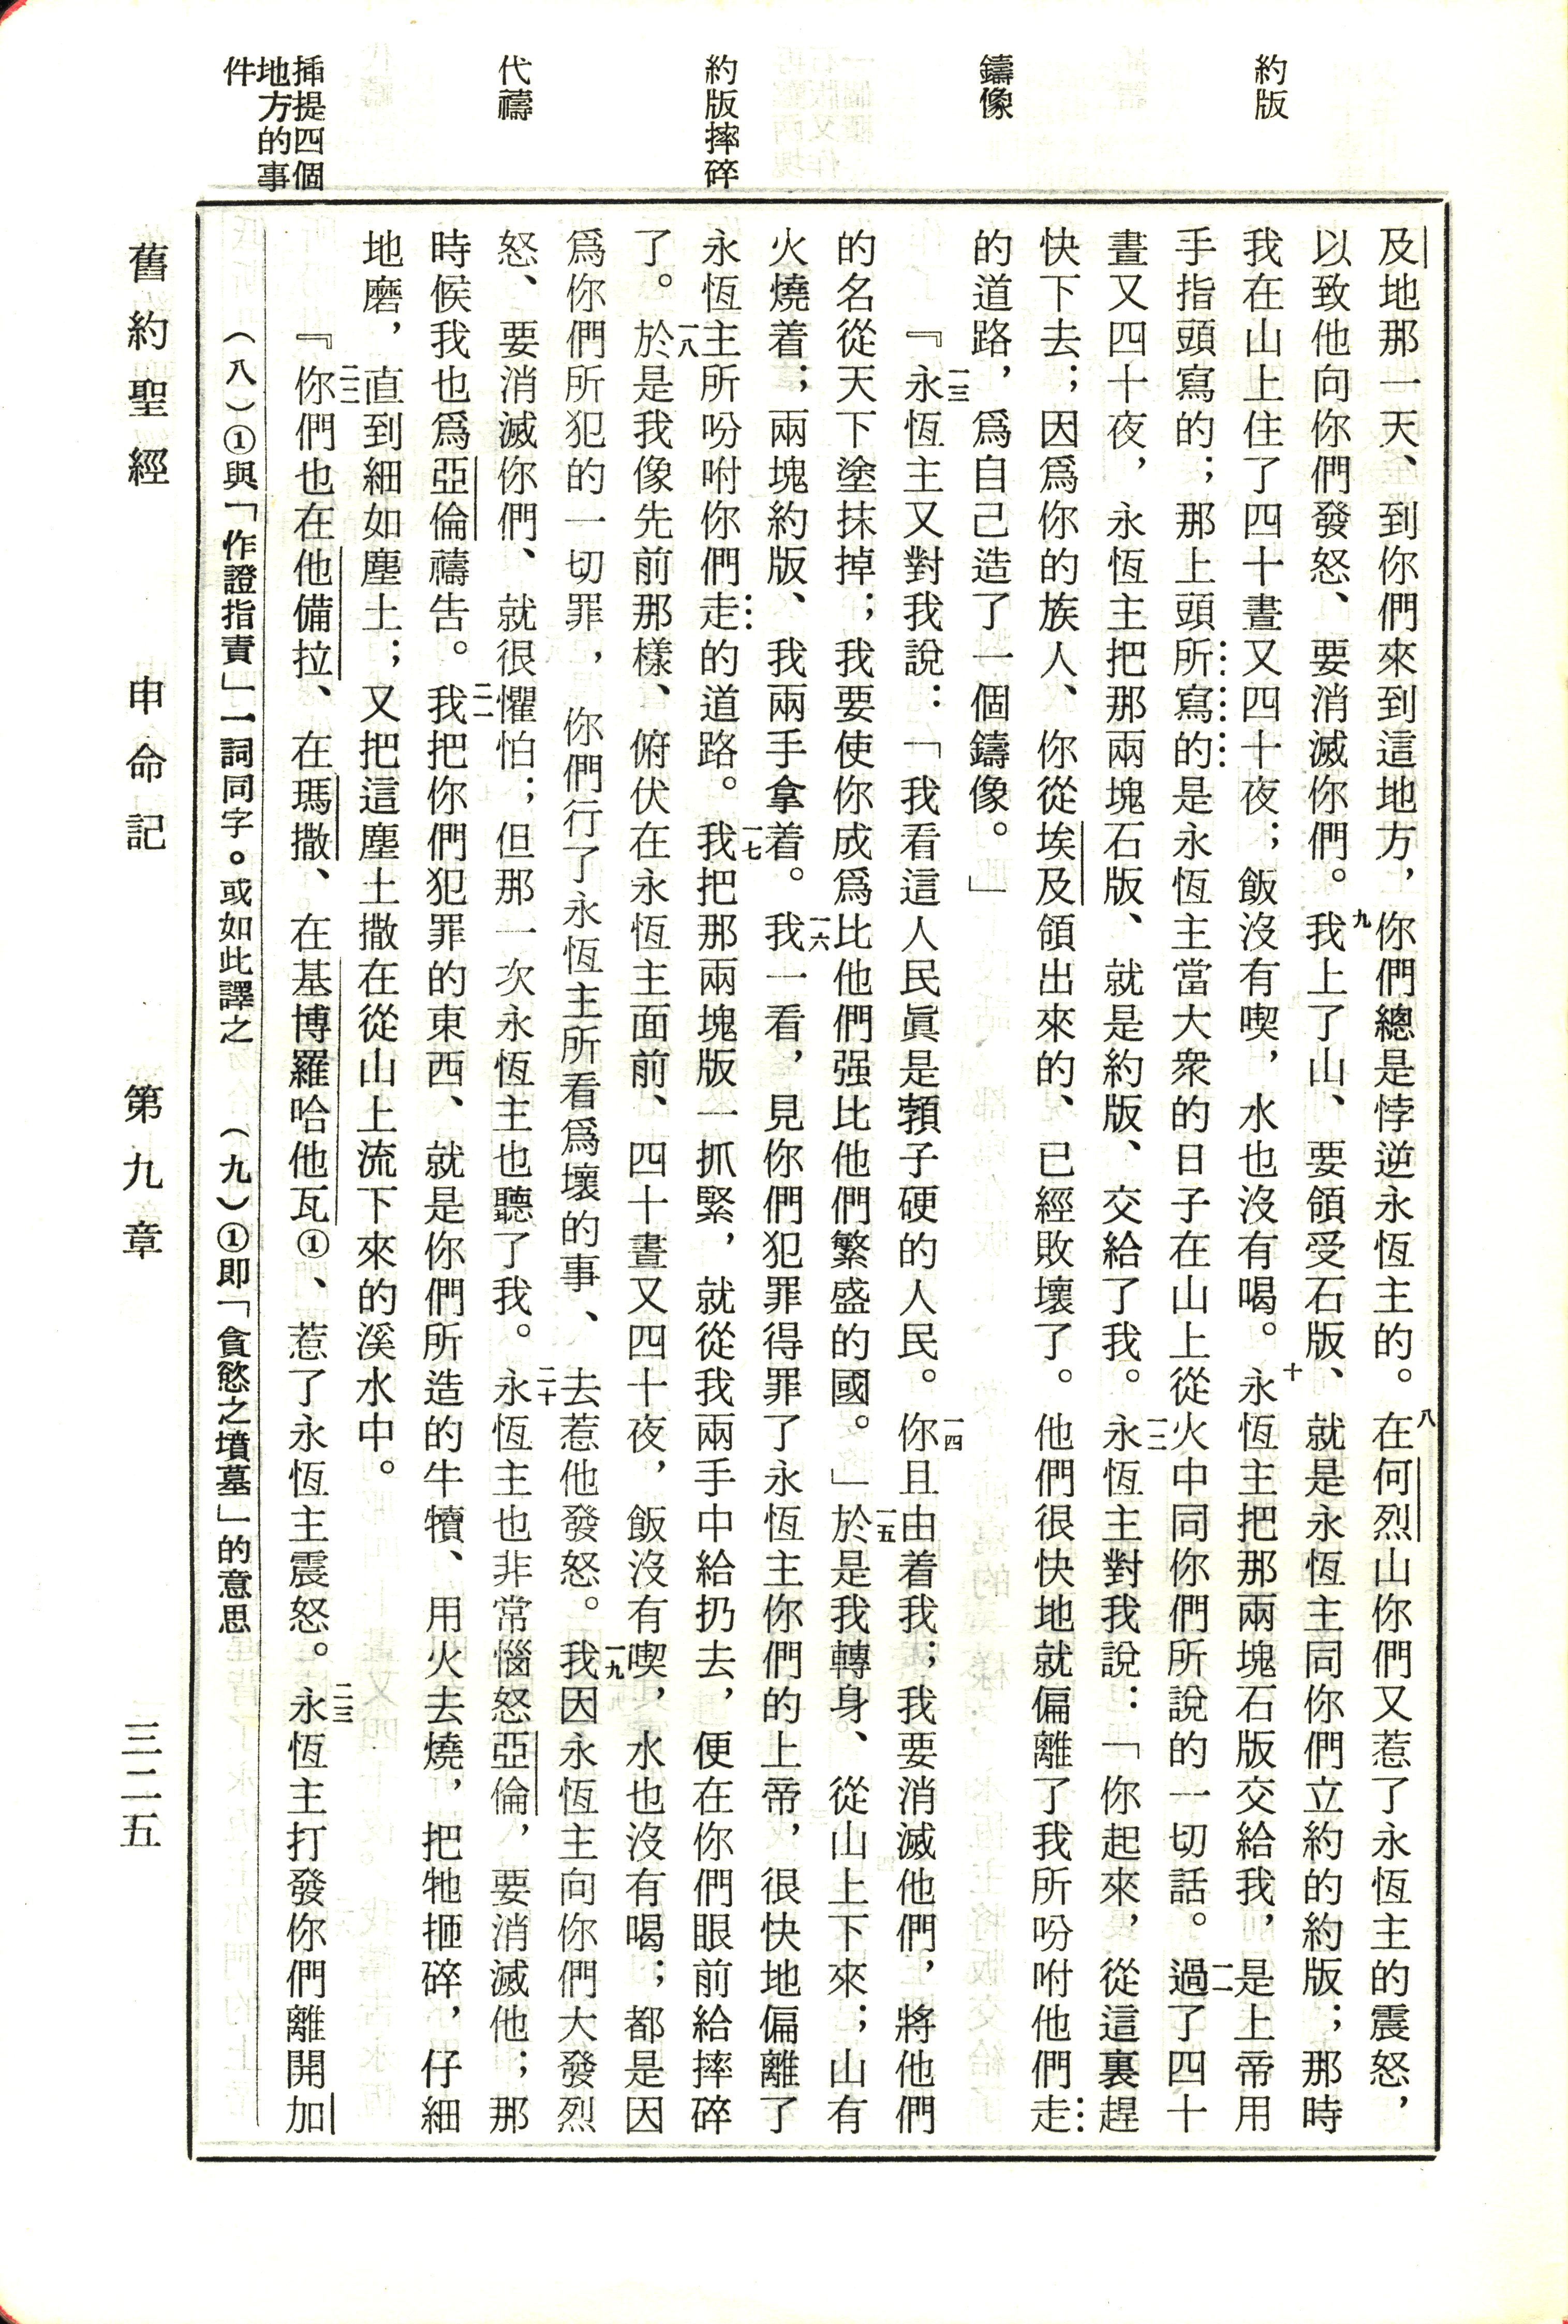 約版
鑄像
約版摔碎
代禱
插提四個
地方的事
件
及地那一天、到你們來到這地方，你們總是悖逆永恆主的。八在何烈山你們又惹了永恆主的震怒，
以致他向你們發怒、要消滅你們。九我上了山、要領受石版、就是永恆主同你們立約的約版；那時
我在山上住了四十晝又四十夜；飯沒有喫，水也沒有喝。十永恆主把那兩塊石版交給我，是上帝用
手指頭寫的；那上頭所寫的是永恆主當大衆的日子在山上從火中同你們所說的一切話。一一過了四十
晝又四十夜，永恆主把那兩塊石版、就是約版、交給了我。一二永恆主對我說：「你起來，從這裏趕
快下去；因爲你的族人、你從埃及領出來的、已經敗壞了。他們很快地就偏離了我所吩咐他們走
的道路，爲自己造了一個鑄像。」
『一三永恆主又對我說：「我看這人民眞是頸子硬的人民。一四你且由着我；我要消滅他們，將他們
的名從天下塗抹掉；我要使你成爲比他們强比他們繁盛的國。」一五於是我轉身、從山上下來；山有
火燒着；兩塊約版、我兩手拿着。一六我一看，見你們犯罪得罪了永恆主你們的上帝，很快地偏離了
永恆主所吩咐你們走的道路。一七我把那兩塊版一抓緊，就從我兩手中給扔去，便在你們眼前給摔碎
了。一八於是我像先前那樣、俯伏在永恆主面前、四十晝又四十夜，飯沒有喫，水也沒有喝；都是因
爲你們所犯的一切罪，你們行了永恆主所看爲壞的事、去惹他發怒。一九我因永恆主向你們大發烈
怒、要消滅你們、就很懼怕；但那一次永恆主也聽了我。二十永恆主也非常惱怒亞倫，要消滅他；那
時候我也爲亞倫禱告。二一我把你們犯罪的東西、就是你們所造的牛犢、用火去燒，把牠搥碎，仔細
地磨，直到細如塵土；又把這塵土撒在從山上流下來的溪水中。
『二二你們也在他備拉、在瑪撒、在基博羅哈他瓦①、惹了永恆主震怒。二三永恆主打發你們離開加
（八）①與「作證指責」一詞同字。或如此譯之　（九）①即「貪慾之墳墓」的意思
舊約聖經　申命記　第九章　三二五